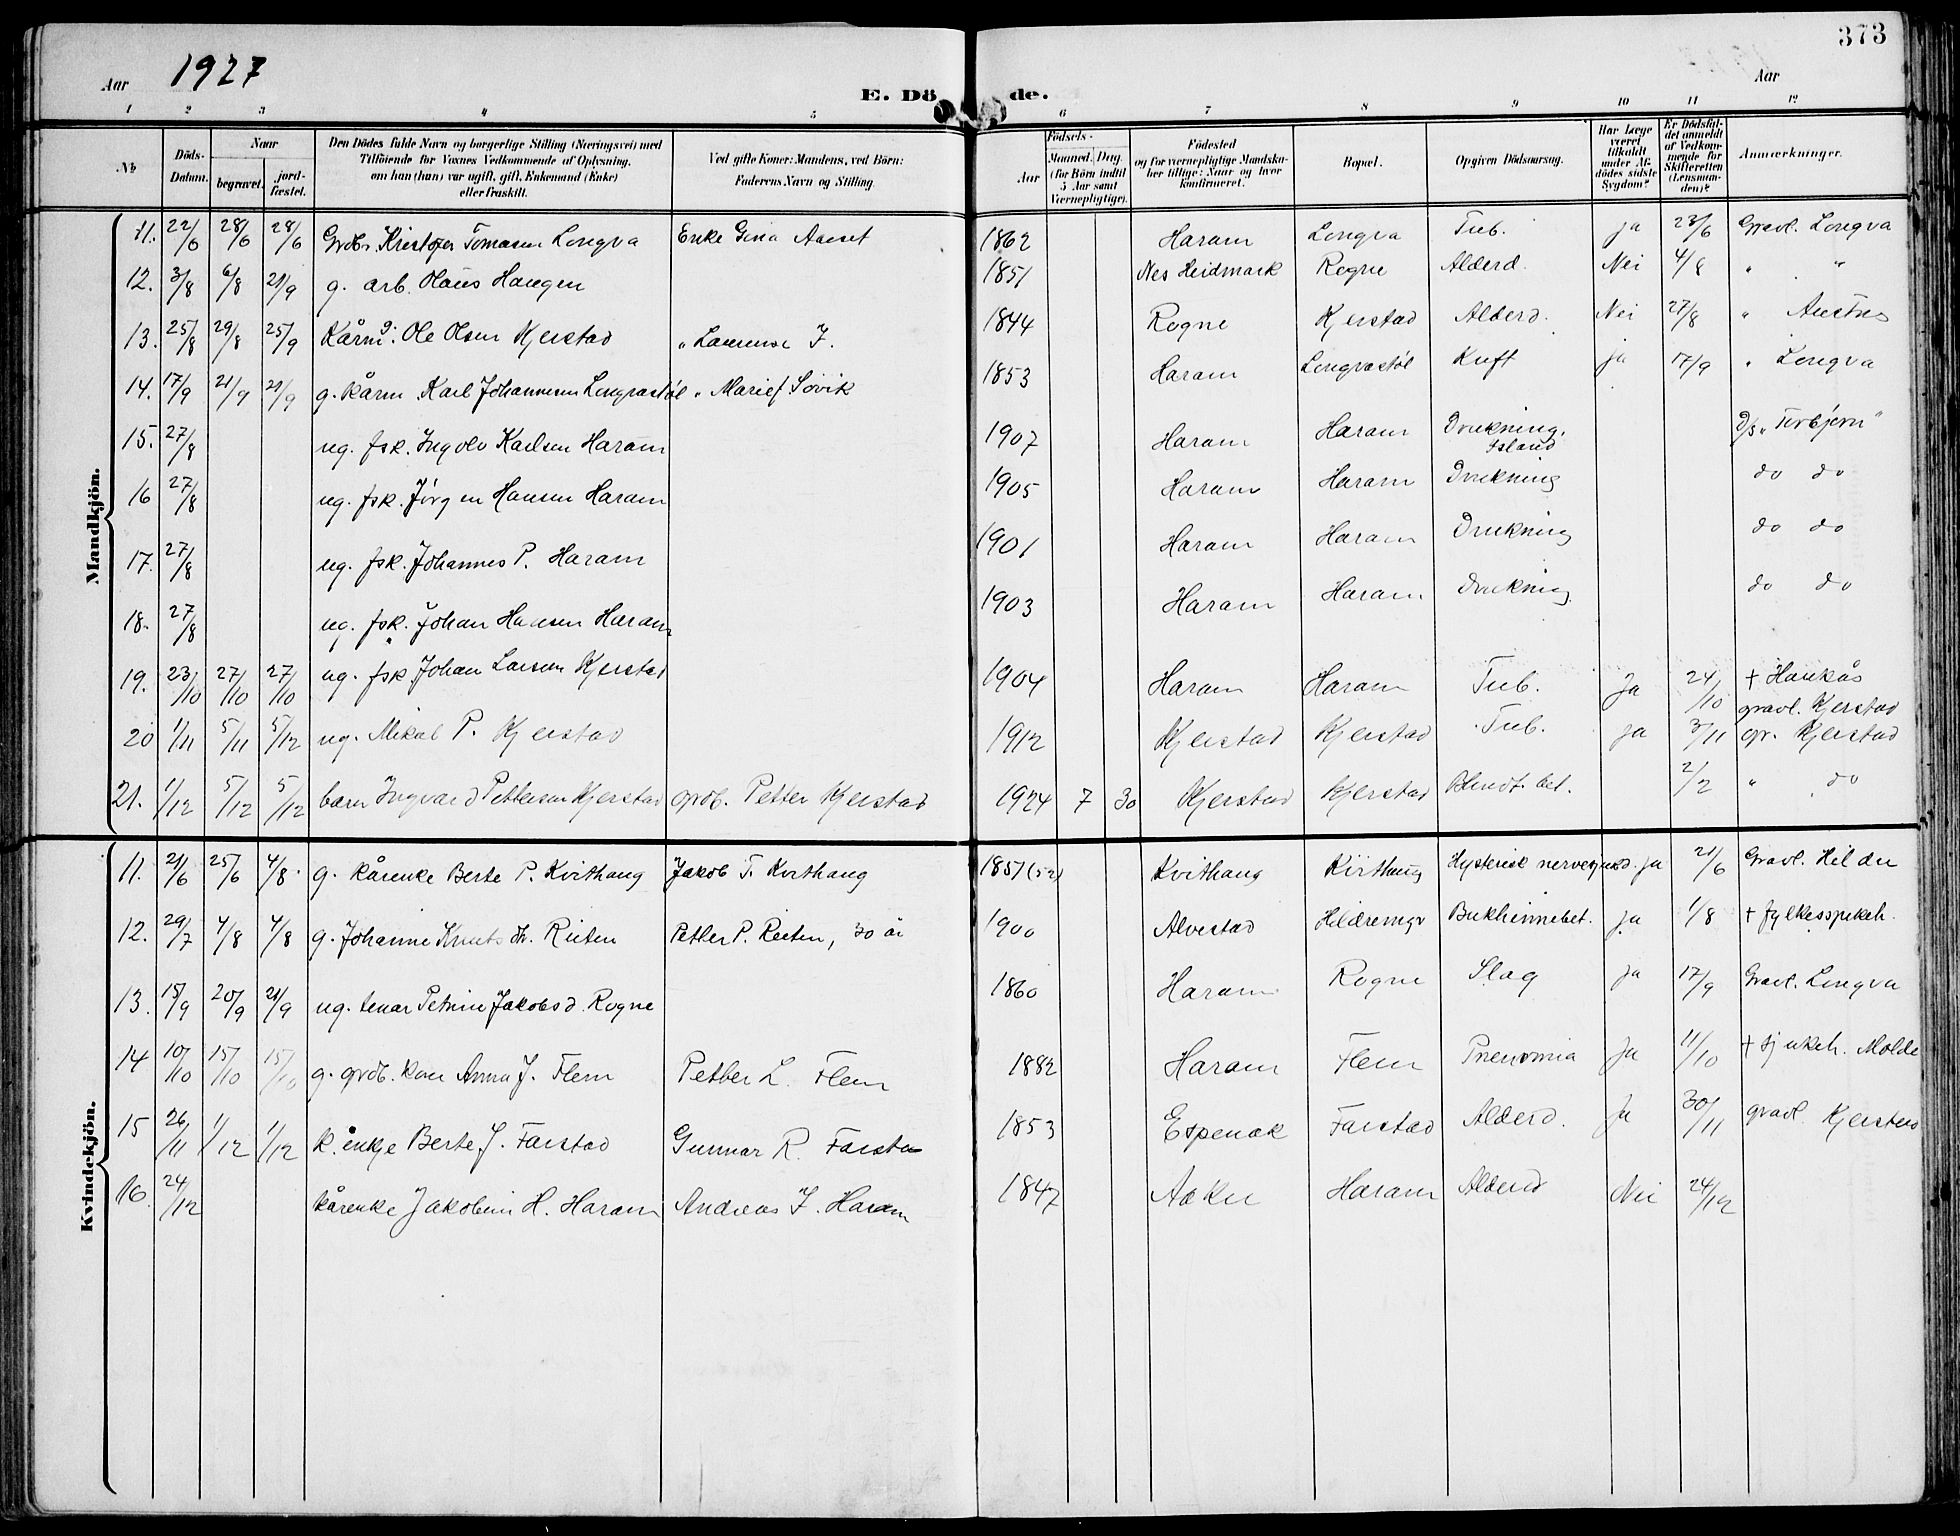 373
Aar 1927
E. Dö de.
Aar
1 2 3 4 5 6 7 8 9 10 11 12
No
Döds-Datum.
Naar
begravet.
jord-fæstet.
Den Dödes fulde Navn og borgerlige Stilling (Næringsvei) med
Tilföiende for Voxnes Vedkommende af Oplysning,
om han (hun) var ugift, gift, Enkemand (Enke)
eller fraskilt.
Ved gifte Koner: Mandens, ved Börn:
Faderens Navn og Stilling.
Födsels-
Aar
Maaned. Dag.
(for Börn indtil
5 Aar samt
Værnepligtige).
Födested
og for værnepligtige Mandska-
ber tillige: Naar og hvor
konfirmeret.
Bopæl.
Opgiven Dödsaarsag.
Har Læge
været
tilkaldt
under Af-
dödes sidste
Sygdom?
Er Dödsfal-
det anmeldt
af Vedkom-
mende for
Skifteretten
(Lensman-
den)?
Anmærkninger.
Mandkjön.
11. 22/6 28/6 28/6 Grdbr. Kristofer Tomassen Longva Enke Gina Aaset 1862 Haram Longva Tub. ja 23/6 Gravl. Longva
12. 3/8 6/8 21/9 g. arb. Olaus Haugen 1851 Nes Heidmark Rogne Alderd. Nei 4/8 " "
13. 25/8 29/8 25/9 Kårm. g: Ole Olsen Kjerstad " Laurense J. 1844 Rogne Kjerstad Alderd. Nei 27/8 " Austnes
14. 17/9 21/9 21/9 g. kårm. Karl Johannesen Longvastøl " Marie J. Søvik 1853 Haram Longvastøl Kreft ja 17/9 " Longva
15. 27/8 ug. fsk. Ingolv Karlsen Haram 1907 Haram Haram Drukning, Island D/s "Torbjørn"
16 27/8 ug. fsk. Jörgen Hansen Haram 1905 Haram Haram Drukning do do
17. 27/8 ug. fsk. Johannes P. Haram 1901 Haram Haram Drukning do do
18. 27/8 ug. fsk. Johan Hansen Haram 1903 Haram Haram Drukning do do
19. 23/10 27/10 27/10 ug. fsk Johan Larsen Kjerstad 1904 Haram Haram Tub. Ja 24/10 + Haukås
gravl. Kjerstad
20 1/11 5/11 5/12 ug. Mikal P. Kjerstad 1912 Kjerstad Kjerstad Tub. ja 3/11 gr. Kjerstad
21. 1/12 5/12 5/12 barn Ingvard Pettersen Kjerstad grdb. Petter Kjerstad 1924 7 30 Kjerstad Kjerstad bet. 2/2 " do
Kvindekjön.
11. 21/6 25/6 4/8 g. kårenke Berte P. Kvithaug Jakob T. Kvithaug 1851 (52) Kvithaug Kvithaug Hysterisk ja 21/6 Gravl. Hildre
12. 29/7 4/8 4/8 g. Johanne Knutsdtr. Reiten Petter P. Reiten, 30 år 1900 Alvestad Hildremyr Bukhinnebet. ja 1/8 + fylkessjukeh.
13. 15/9 20/9 21/9 ug. tenar Petrine Jakobsd. Rogne 1860 Haram Rogne Slag ja 17/9 Gravl. Longva
14 10/10 15/10 15/10 g. grdb. kone Anna J. Flem Petter L. Flem 1882 Haram Flem Pneumonia Ja 11/10 + sjukeh. Molde
15 26/11 1/12 1/12 k. enkje Berte J. Farstad Gunnar R. Farsta 1853 Espenak Farstad Alderd. Ja 30/11 gravl. Kjerstad
16. 24/12 kårenke Jakobine H. Haram Andreas J. Haram 1847 Aaker Haram Alderd Nei 24/12